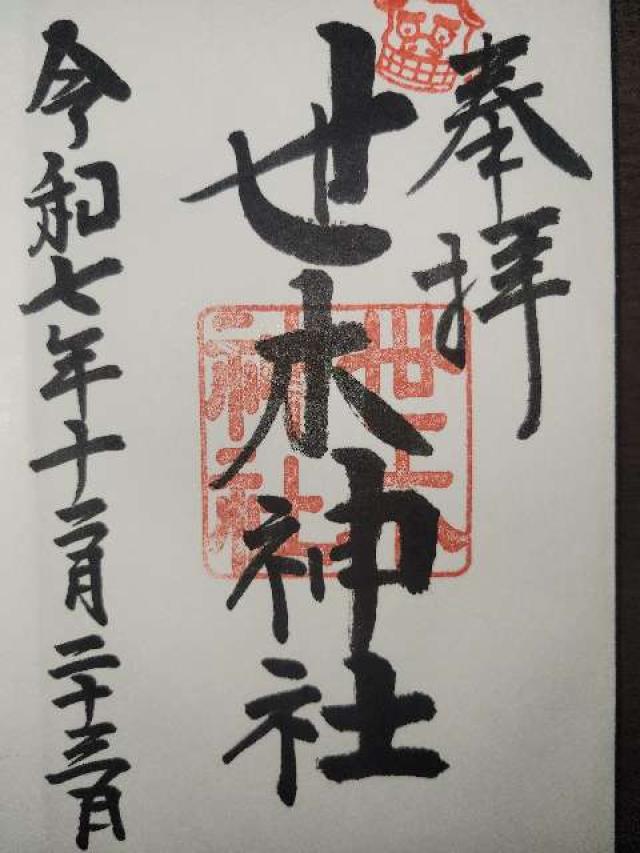 奉拝
世木神社
世木神社
令和七年十二月二十三日